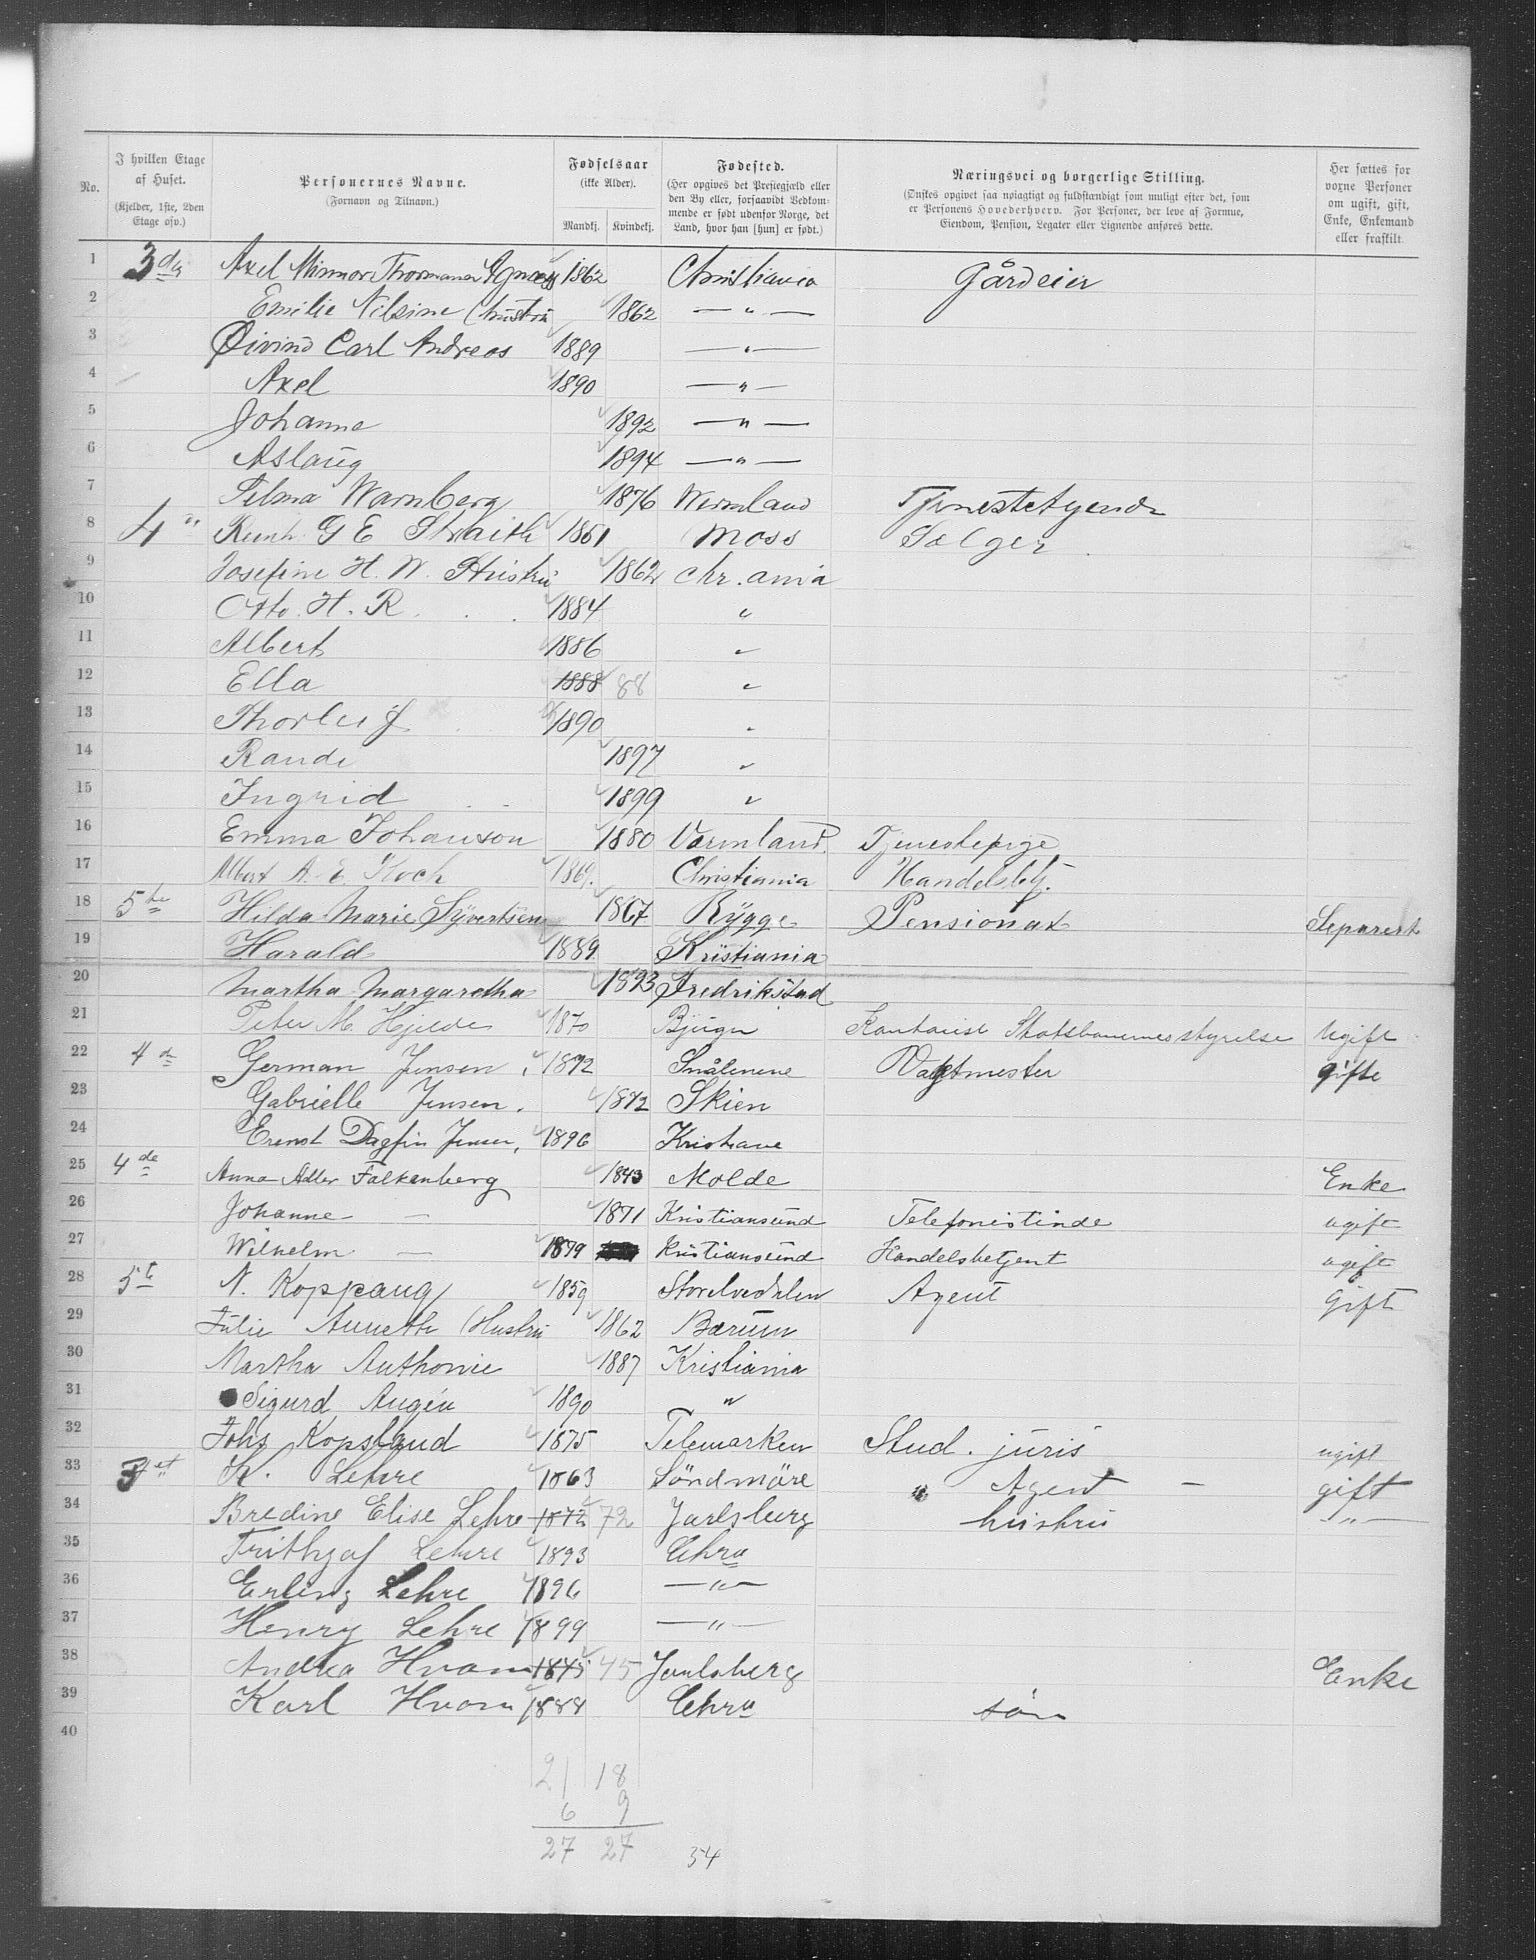 No.
I hvilken Etage af Huset.
(Kjelder, 1ste, 2den Etage osv.)
Personernes Navne.
(Fornavn og Tilnavn.)
Fødselsaar
(ikke Alder).
Mandkj. Kvindekj.
Fødested.
(Her opgives det Præstegjæld eller den By eller, forsaavidt Vedkommende er født udenfor Norge, det Land, hvor han [hun] er født.)
Næringsvei og borgerlige Stilling.
(Ønskes opgivet saa nøiagtigt og fuldstændigt som muligt efter det, som er Personens Hovederhverv. For Personer, der leve af Formue, Eiendom, Pension, Legater eller Lignende anføres dette.
Her sættes for voxne Personer om ugift, gift, Enke, Enkemand eller fraskilt.
1 3die Axel Minnor 1862 Christiania Gårdeier
2 Emilie Nilsine (hustru 1862 — " —
3 Øivind Carl Andreas 1889 — " —
4 Axel 1890 — " —
5 Johanne 1892 — " —
6 Aslaug 1894 — " —
7 Warnberg 1876 Wermland
8 4 " G E 1861 Moss Sælger
9 Josefine H. W. Hustru 1862 Chr.ania
10 Otto H. R. 1884 "
11 Albert 1886 "
12 Ella 1888 88 "
13 Thorleif 1890 "
14 Randi 1897 "
15 Ingrid 1899 "
16 Emma Johanson 1880 Varmland Tjenestepige
17 Albert A. E. Koch 1869. Christiania Handelsbetj.
18 5te Hilda Marie Syvertsen 1867 Rygge Pensionat Separert
19 Harald 1889 Kristiania
20 Martha Margaretha 1893 Fredrikstad
21 Peter M. Hjelde 1870 Bjugn Kontorist Statsbanernes styrelse Ugift
22 4de German Jensen 1872 Smålenene Vagtmester gifte
23 Gabrielle Jensen. 1872 Skien
24 Erenst Dagfin Jensen, 1896
25 4de Anna Adler Falkenberg 1843 Molde Enke
26 Johanne — 1871 Kristiansund Telefonistinde ugift
27 Wilhelm — 1879 Kristiansund Handelsbetjent ugift
28 5te N. Koppang 1859 Storelvedalen Agent Gift
29 Julie Annethe (Hustru 1862 Bærum
30 Martha Anthonie 1887 Kristiania
31 Sigurd 1890 "
32 Johs Kopsland 1875 Telemarken Stud. juris ugift
33 K. Lehre 1863 Söndmöre Agent — gift
34 Bredine Elise Lehre 1872 72 Jarlsberg hustru — " —
35 Frithjof Lehre 1893 Chra
36 Erling Lehre 1896 — " —
37 Henry Lehre 1899 — " —
38 Andrea Hvam 1845 45 Jarlsberg Enke
39 Karl Hvam 1888 Chra sön
40
21 18
6 9
27 27 54